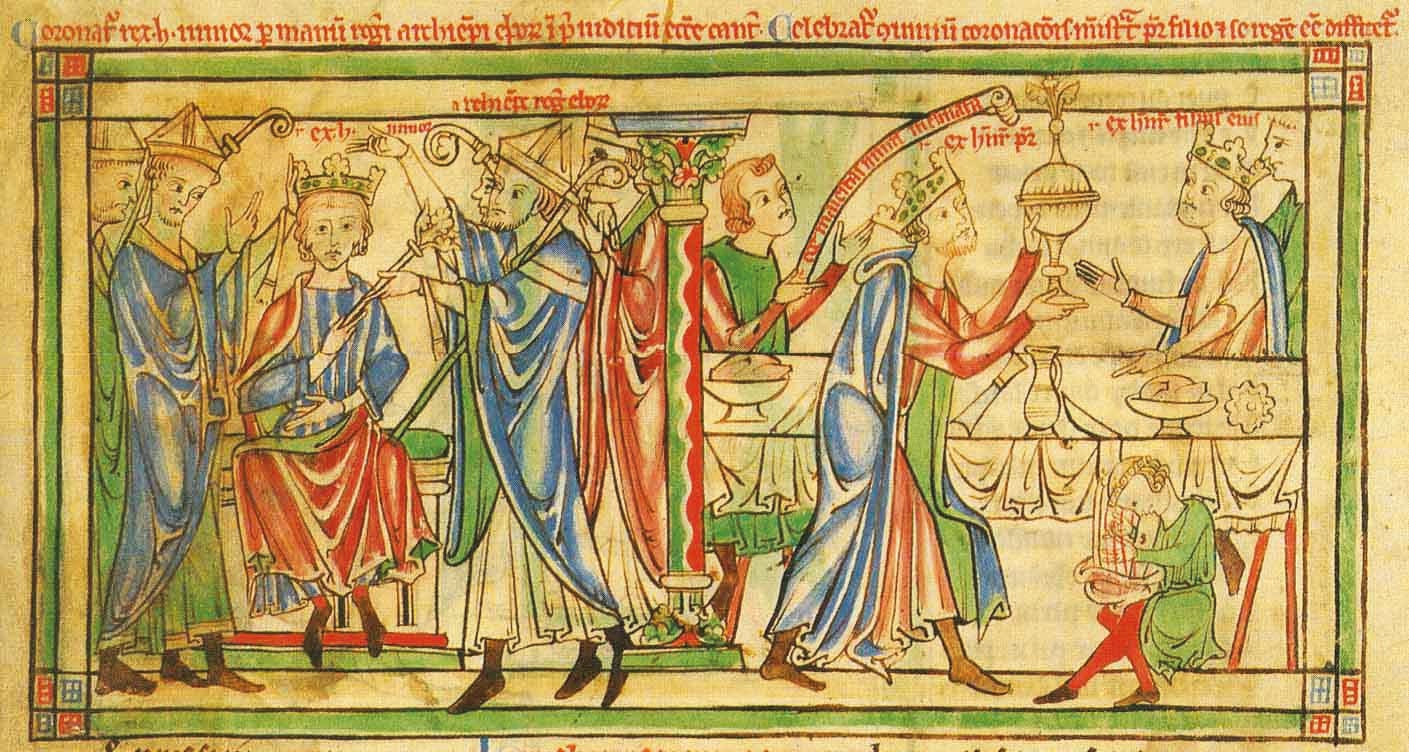 Coronat᷑ rex .h. iunior ꝑ manū rogi archiepi ebor᷑ ī p̄iudiciū ecc̄e cant᷑. Celebrat᷑ ꝯuiuiū coronac̄ois. mīst᷑t pr̄ filio ⁊ se regē eē diffitet᷑.
archiep̄c rog᷑ ebor᷑
rex .h. iunior
rex henr᷑ pr̄
rex henr᷑ filius eius